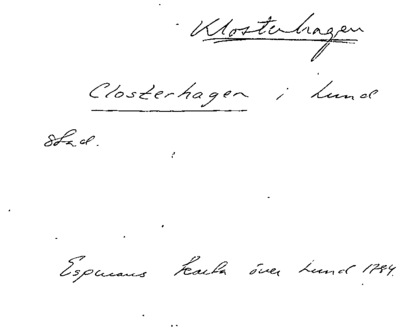 Klosterhagen
Closterhagen i Lund
stad.
Espmans karta över Lund 1784.